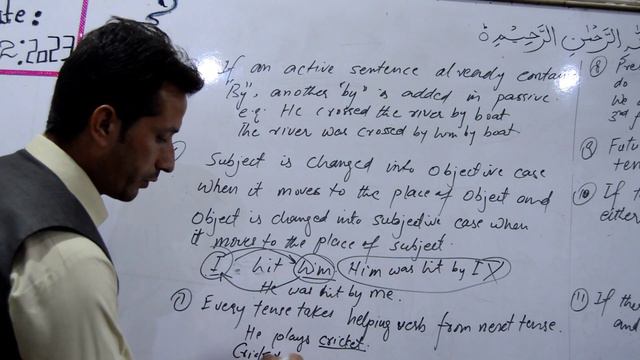 ate:
2:2023
الرَّحْمٰنِ الرَّحِيْمِ
If an active sentence already contain
"By", another "by" is added in passive.
e.g: He crossed the river by boat
The river was crossed by him by boat
Subject is changed into objective case
when it moves to the place of object and
object is changed into subjective case when
it moves to the place of subject.
I hit him Him was hit by I
He was hit by me.
Every tense takes helping verb from next tense.
He plays cricket.
Cricket
8 Pres
do
we
3rd f
9 Futu
ten
10 If t
either
11 If the
and